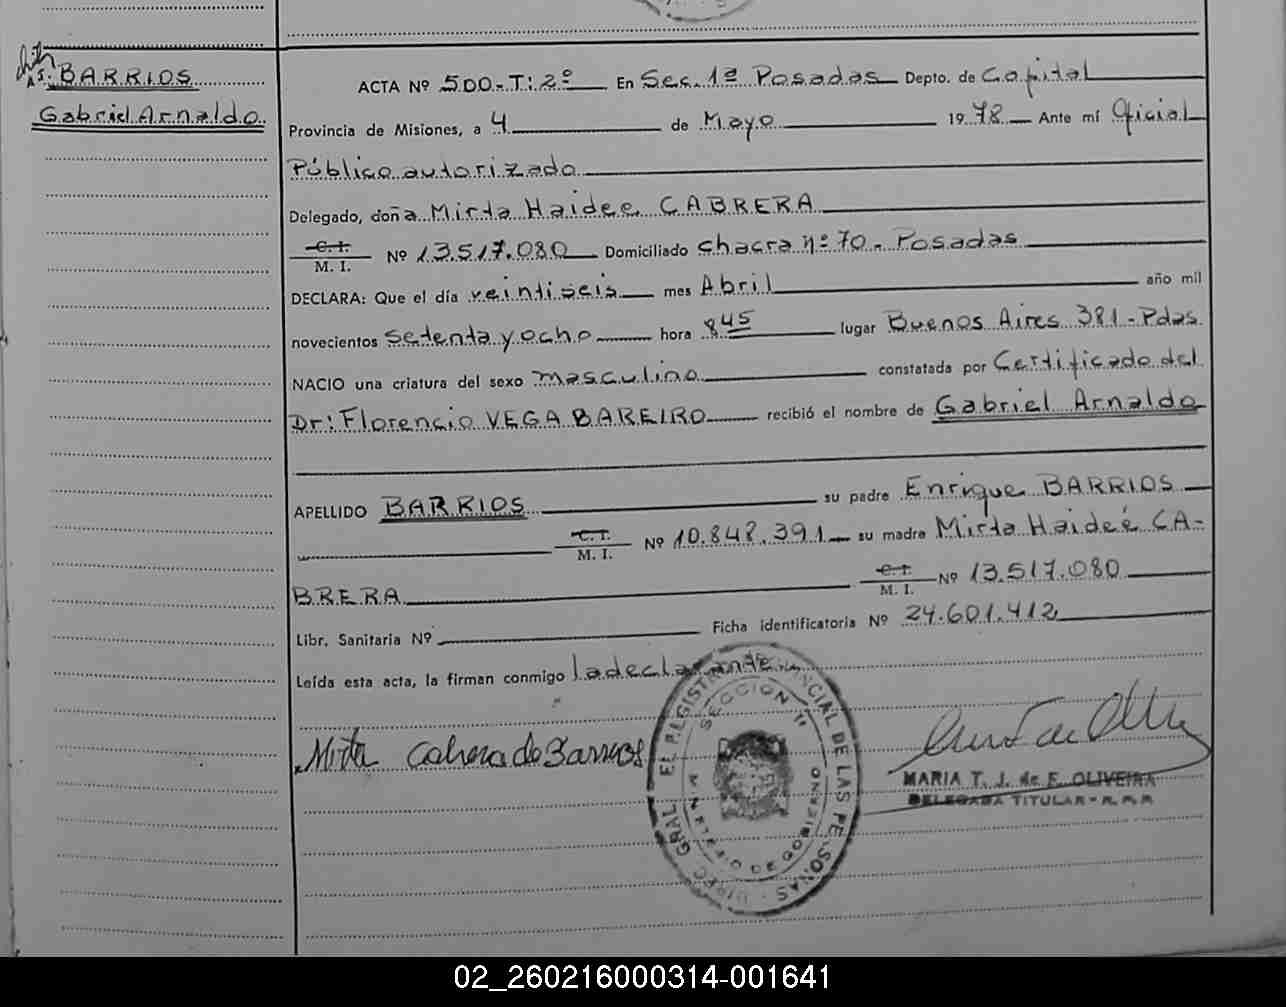 BARRIOS
Gabriel Arnaldo
ACTA Nº 500-T: 2º En Sec. 1ª Posadas Depto. de Capital
Provincia de Misiones, a 4 de Mayo 1978 Ante mí Oficial
Público autorizado
Delegado, doña Mirta Haidee CABRERA
C. I.
M. I. Nº 13.517.080 Domiciliado chacra nº 70. Posadas
DECLARA: Que el día veintiseis mes Abril año mil
novecientos setenta y ocho hora 8 45 lugar Buenos Aires 381-Pdas.
NACIO una criatura del sexo masculino constatada por Certificado del
Dr: Florencio VEGA BAREIRO recibió el nombre de Gabriel Arnaldo
APELLIDO BARRIOS su padre Enrique BARRIOS
C. I.
M. I. Nº 10.848.391 su madre Mirta Haideé CA-
BRERA C. I.
M. I. Nº 13.517.080
Libr. Sanitaria Nº Ficha identificatoria Nº 24.601.412
Leída esta acta, la firman conmigo la declarante.
Mirta Cabrera de Barrios
MARIA T. J. de F. OLIVEIRA
DELEGADA TITULAR - R. P. P.
DIREC. GRAL. EL REGISTRO PROVINCIAL DE LAS PERSONAS
SECCION 1ª
02_260216000314-001641